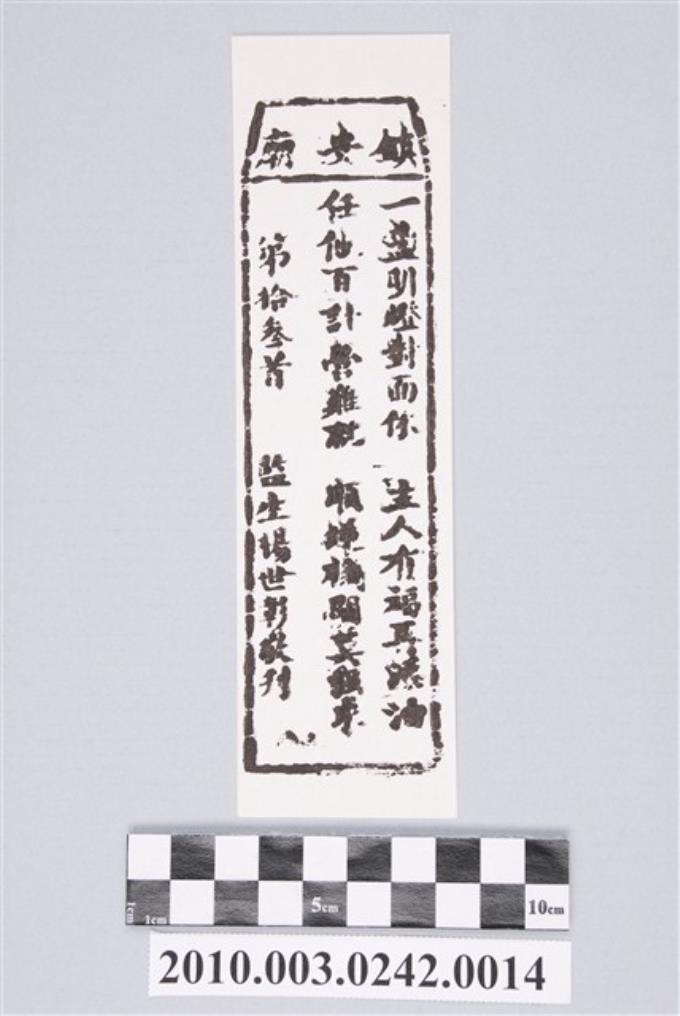 鎮安廟
一盞明燈對面你　主人有福再添油
任他百計營難就　順蟬機關莫強求
第拾叁首　監生楊世彰敬刊
1cm 1cm 5cm 10cm
2010.003.0242.0014